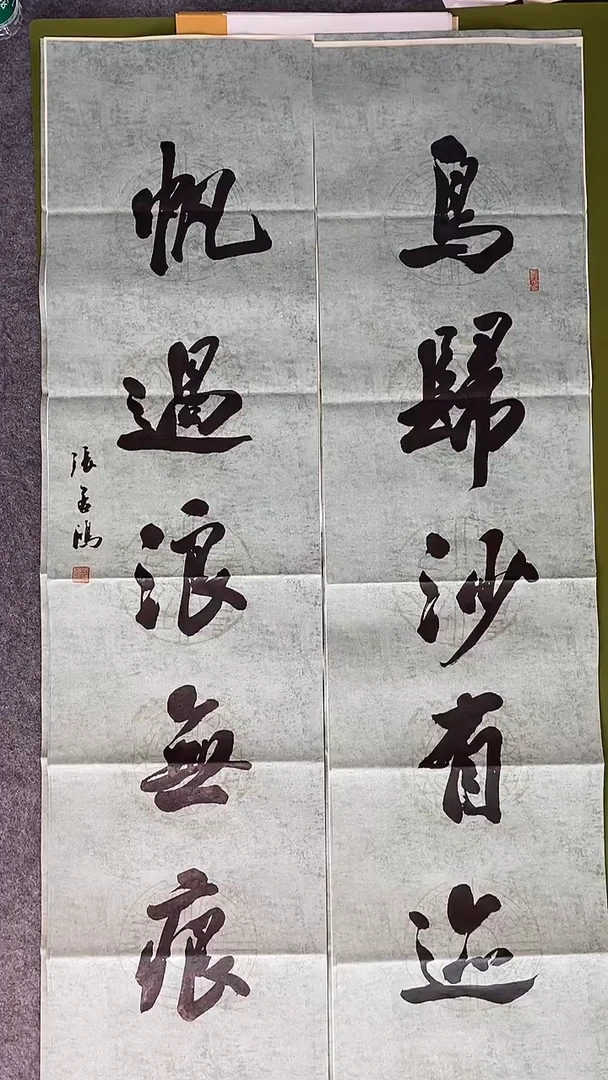 鳥歸沙有迹
帆過浪無痕
張孟鴻